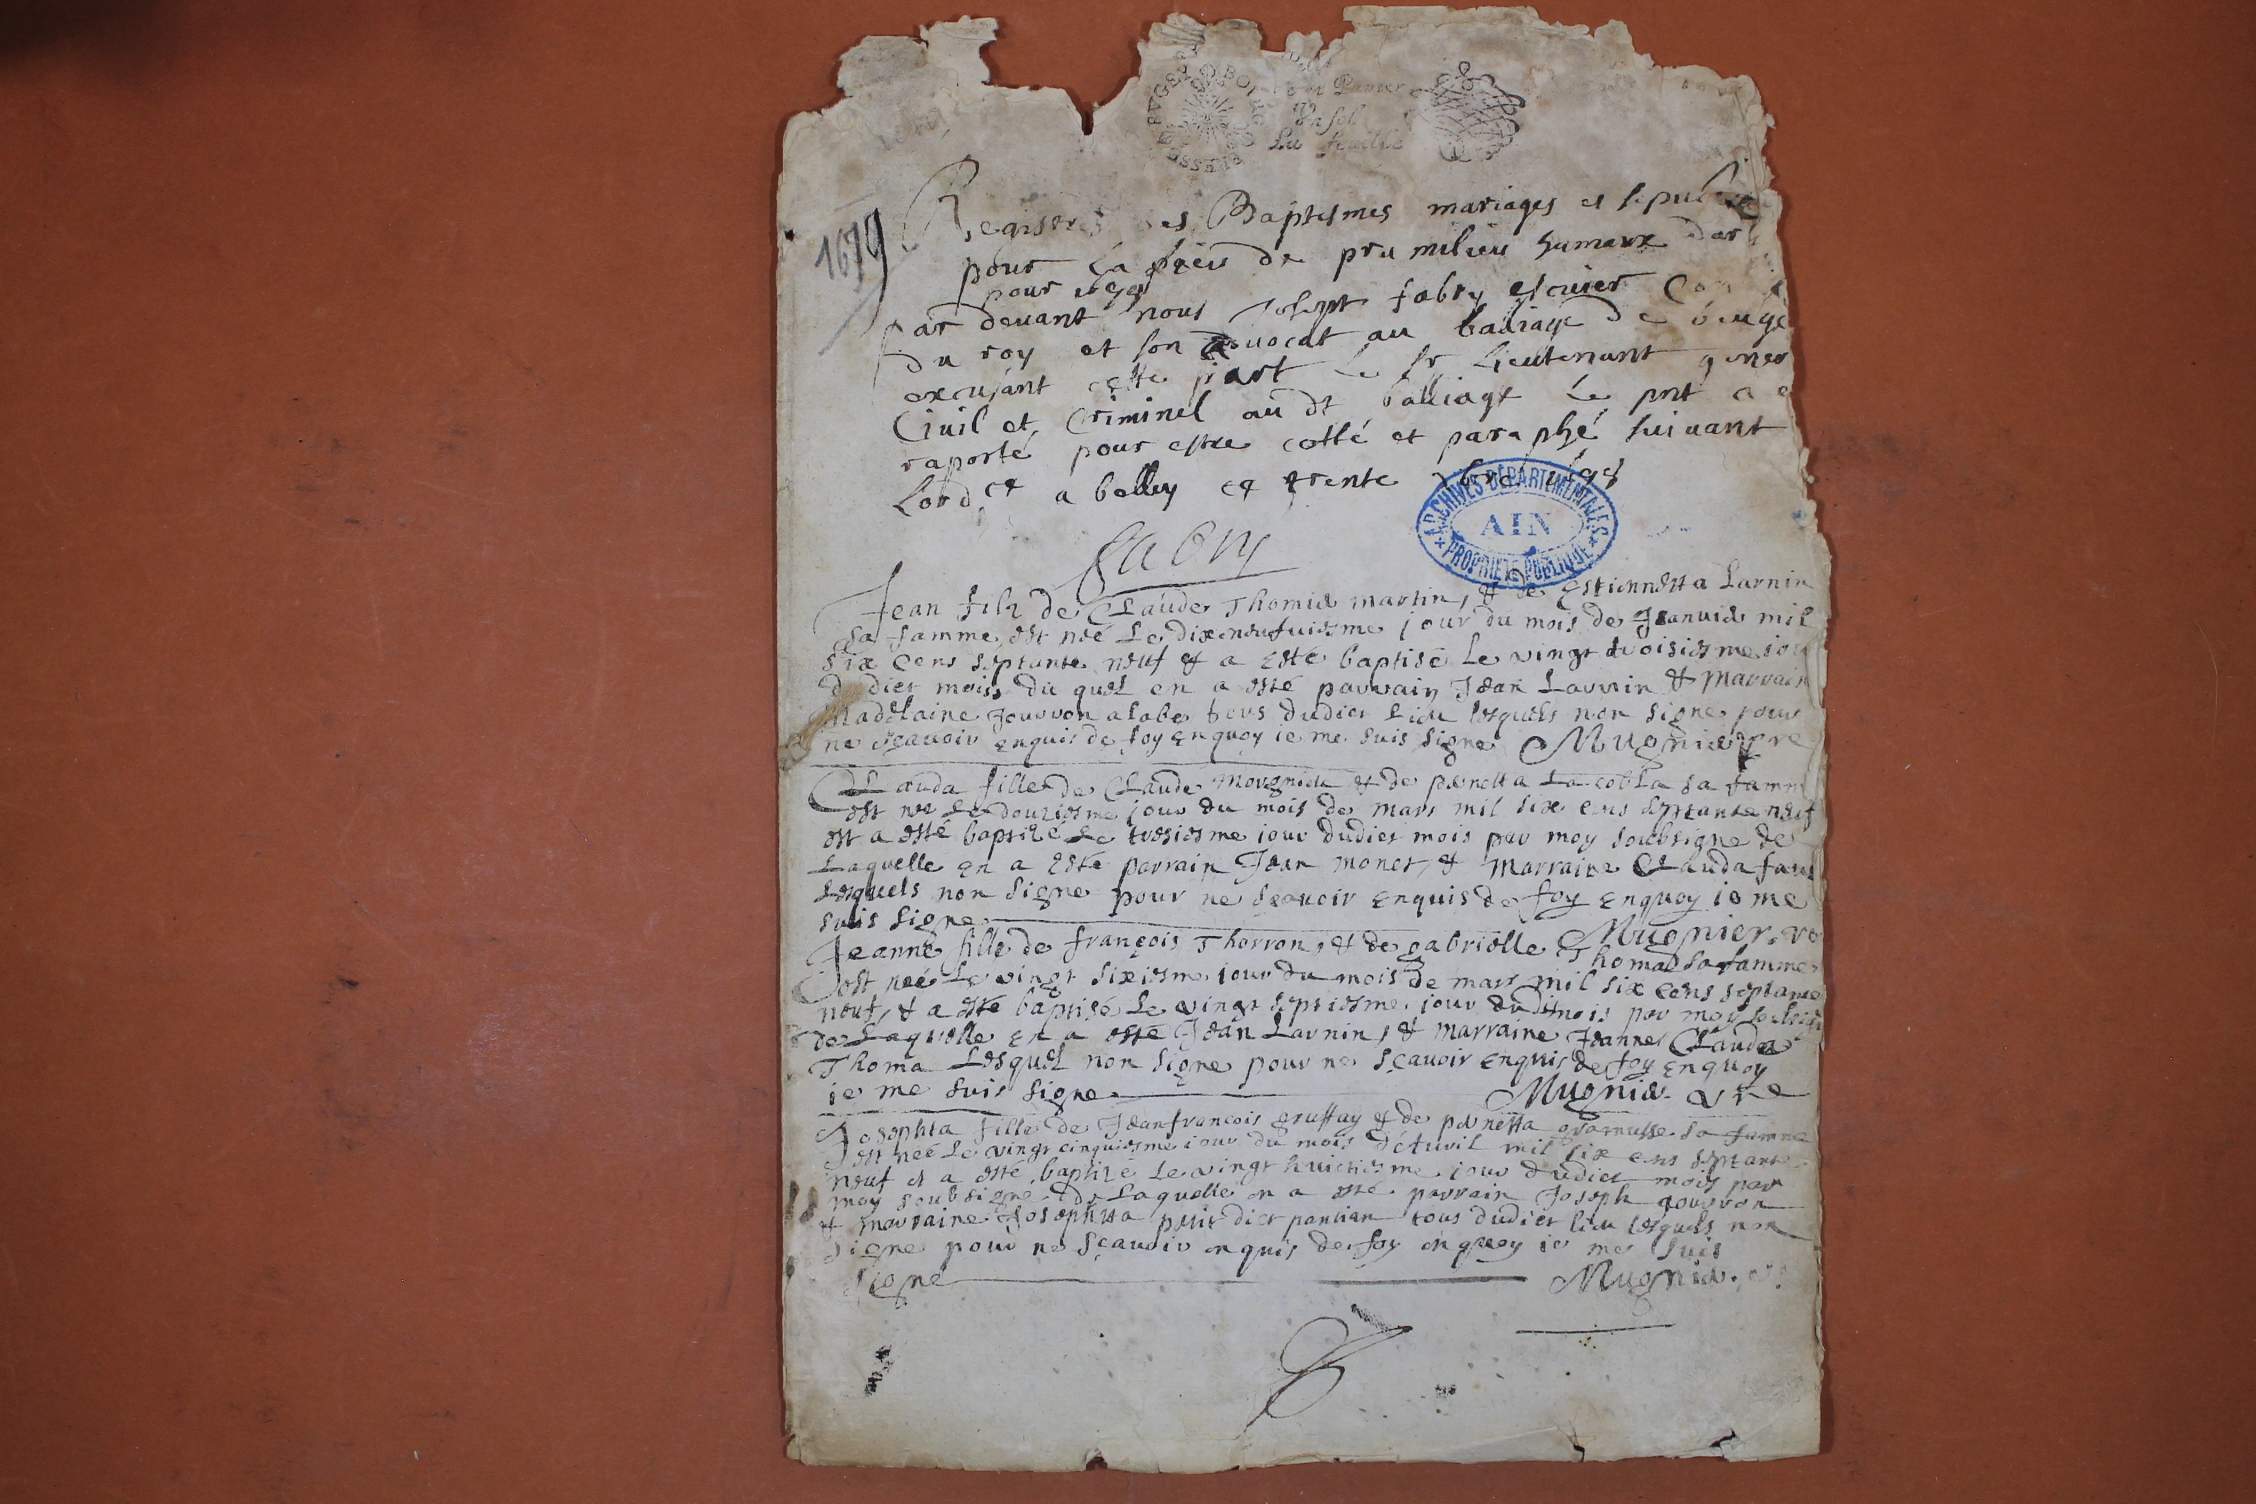 BUGEY
BRESSE
Un sol
La feuille
1679
Registres des Baptesmes mariages et sepul
pour la de premilieu
pour
par devant nous Joseph fabry escuier Con
du roy et son advocat au balliage de beuge
exersant cette part le sr Lieutenant gener
Civil et Criminel au dt balliage Le pnt a e
raporté pour estre cotté et paraphé suivant
Lord ce a belley ce trente
fabry
ARCHIVES DÉPARTEMENTALES
AIN
PROPRIÉTÉ PUBLIQUE
Jean filz de Claude Thomas martin, & de Estiennetta Larnin
sa famme est neé Le dixeneufuiesme jour du mois de Jeanuier mil
six cens septante neuf & a esté baptisé Le vingt troisiesme jou
dudict mois du quel en a esté parrain Jean Larnin & Marrain
Madelaine Jourron tous dudict Lieu lesquels non signe pour
ne sçavoir enquis de foy Enquoy ie me suis signe Mugnier pre
Clauda fille de Claude & de pernetta La cobla sa famm
est neé Le douziesme jour du mois de mars mil six cens septante neuf
est a esté baptizé Le tresiesme iour dudict mois par moy soubsigne de
Laquelle En a Esté parrain Jean monet, & Marraine Clauda faur
Lesquels non signe pour ne sçavoir Enquis de foy Enquoy ie me
suis signe Mugnier
Jeanne fille de françois Thorron, & de gabrielle Thomas sa famme
est neé Le vingt sixiesme iour du mois de mars mil six cens septante
neuf, & a esté baptisé Le vingt septiesme jour du dit mois par moy soubsign
de Laquelle En a esté Jean Larnin, & marraine Jeanne Clauda
Thoma Lesquel non signe pour ne sçavoir Enquis de foy Enquoy
ie me suis signe Mugnier
Josephta fille de Jeanfrancois gruffay & de pernetta sa famme
est neé Le vingt cinquiesme iour du mois d'Avril mil six cens septante
neuf et a esté baptizé Le vingt huictiesme jour dudict mois par
moy soubsigne de Laquelle en a esté parrain Joseph gourron
& marraine Josephta petit dict tous dudict lieu lesquels non
signe pour ne sçavoir enquis de foy en quoy ie me suis
signé Mugnier